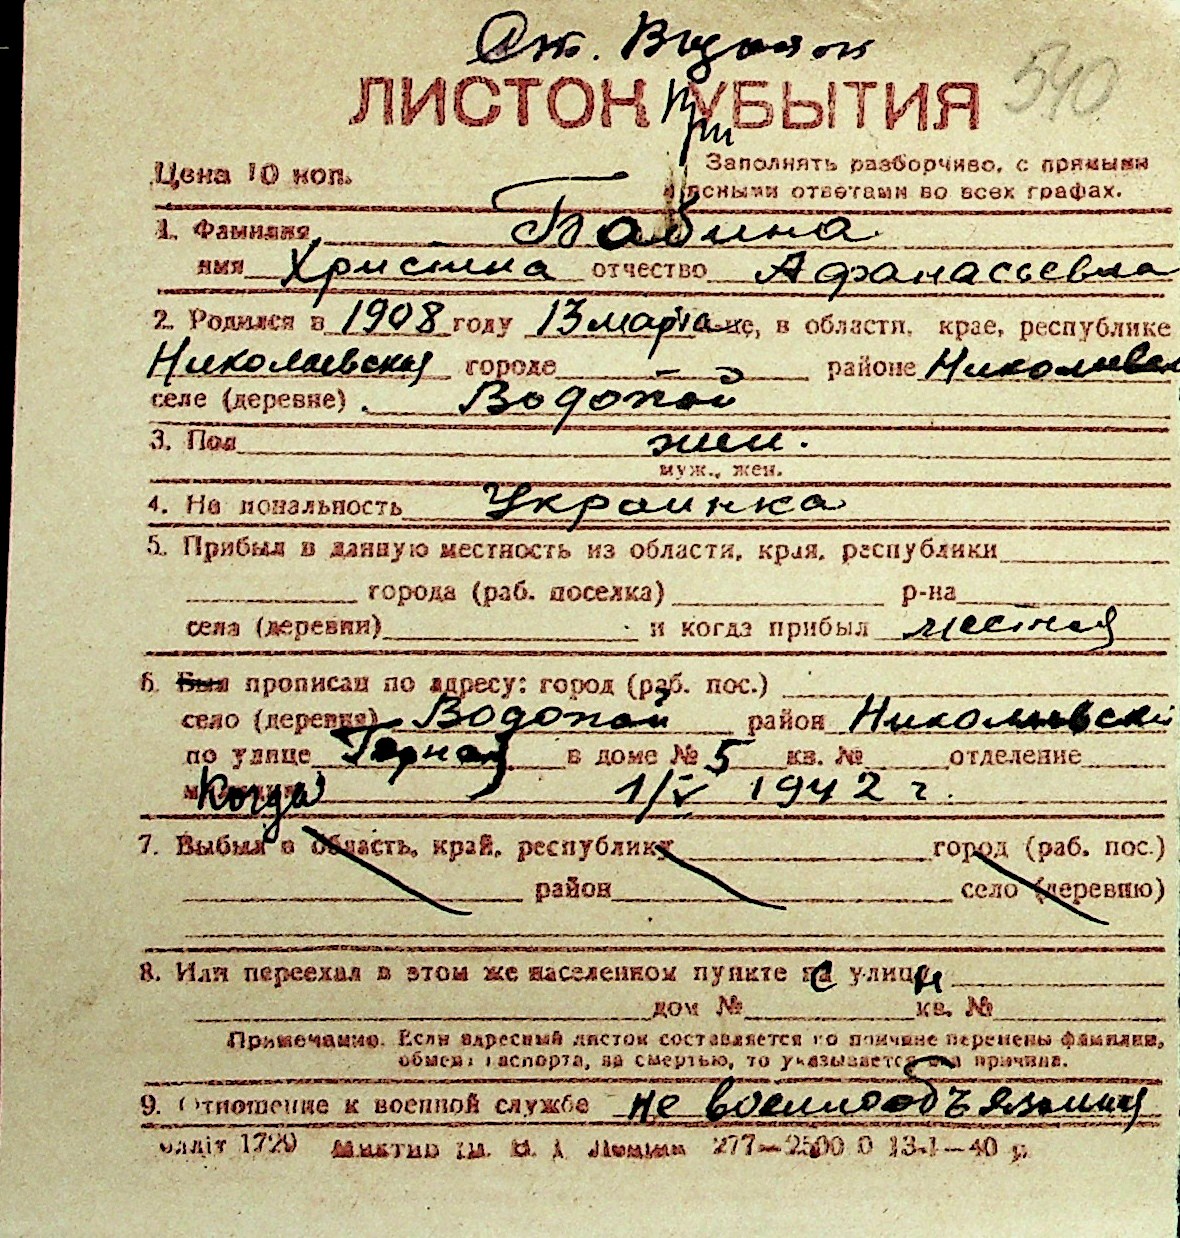 Ст. Водопой
ЛИСТОК УБЫТИЯ
При
540
Цена 10 коп.
Заполнять разборчиво, с прямыми
и ясными ответами во всех графах.
1. Фамилия Бабина
имя Христина отчество Афанасьевна
2. Родился в 1908 году 13 марта це, в области, крае, республике
Николаевская городе районе Николаевск
селе (деревне) Водопой
3. Пол жен.
муж., жен.
4. Национальность Украинка
5. Прибыл в данную местность из области, края, республики
города (раб. поселка) р-на
села (деревни) и когда прибыл местная
6. Был прописан по адресу: город (раб. пос.)
село (деревня) Водопой район Николаевский
по улице в доме № 5 кв. № отделение
Когда 1/V 1942 г.
7. Выбыл в область, край, республику город (раб. пос.)
район село (деревню)
8. Или переехал в этом же населенном пункте с улицы
дом № кв. №
Примечание. Если адресный листок составляется по причине перемены фамилии,
обмена паспорта, за смертью, то указывается эта причина.
9. Отношение к военной службе не военнообязанная
1720 277—2500 0 13-1—40 р.